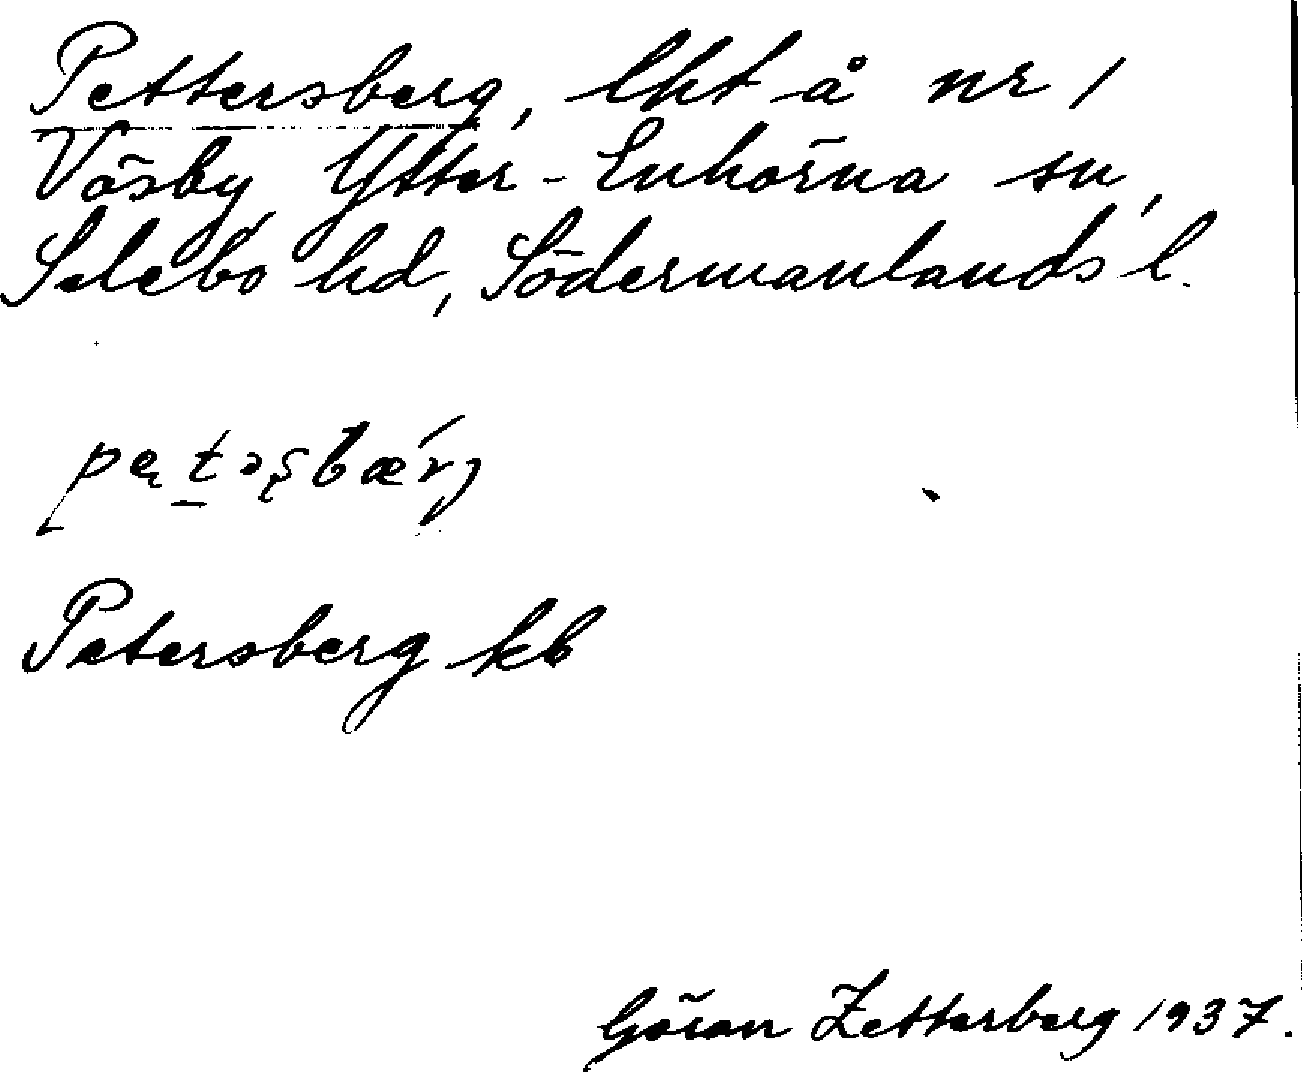 Pettersberg, lht å nr 1
Vösby Ytter-Enhörna sn,
Selebo hd, Södermanlands l.
pęt̠əʂbærj
Petersberg kb
Göran Zetterberg 1937.